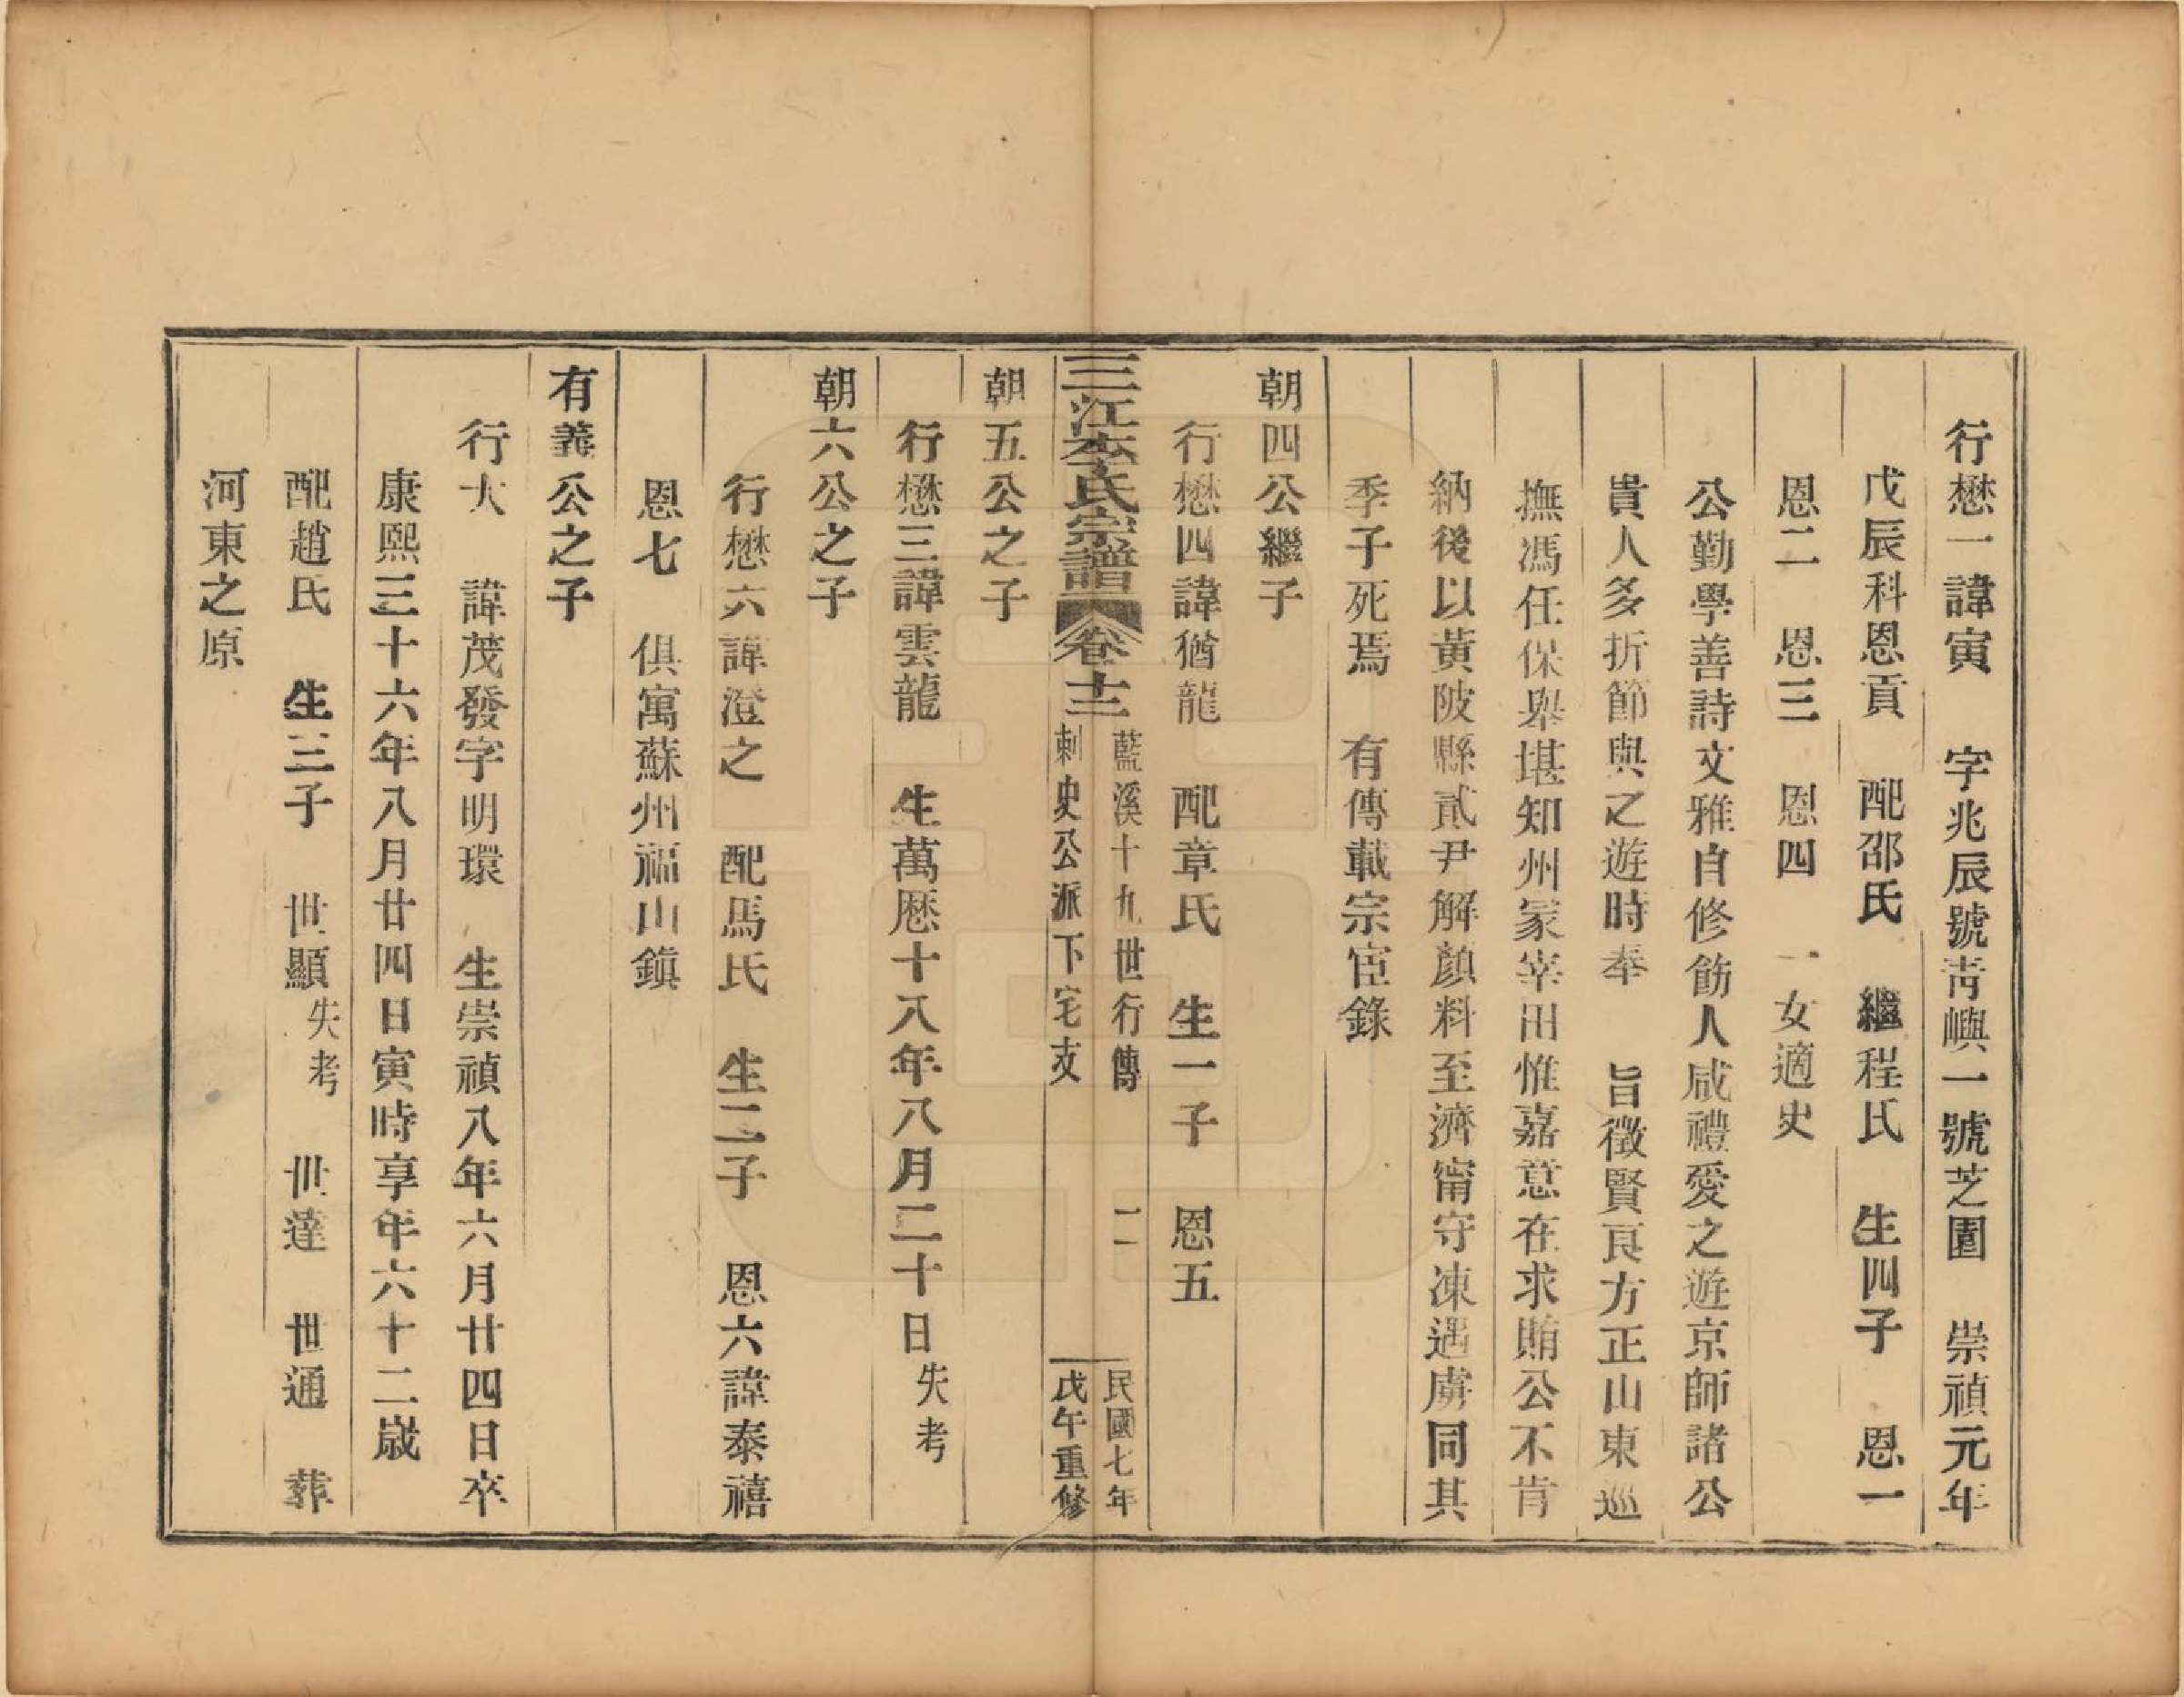 行懋一諱寅　字兆辰號靑嶼一號芝園　崇禎元年
戊辰科恩貢　配邵氏　繼程氏　生四子　恩一
恩二　恩三　恩四　一女適史
公勤學善詩文雅自修飭人咸禮愛之遊京師諸公
貴人多折節與之遊時奉　旨徵賢良方正山東巡
撫馮任保舉堪知州冢宰田惟嘉意在求賄公不肯
納後以黃陂縣貳尹解顏料至濟甯守凍遇虜同其
季子死焉　有傳載宗宦錄
朝四公繼子
行懋四諱猶龍　配章氏　生一子　恩五
三江李氏宗譜　卷十三　藍溪十九世行傳　刺史公派下宅支　二　民國七年戊午重修
朝五公之子
行懋三諱雲龍　生萬歷十八年八月二十日失考
朝六公之子
行懋六諱澄之　配馬氏　生二子　恩六諱泰禧
恩七　俱寓蘇州福山鎭
有義公之子
行大　諱茂發字明環　生崇禎八年六月廿四日卒
康熙三十六年八月廿四日寅時享年六十二歲
配趙氏　生三子　世顯失考　世達　世通　葬
河東之原